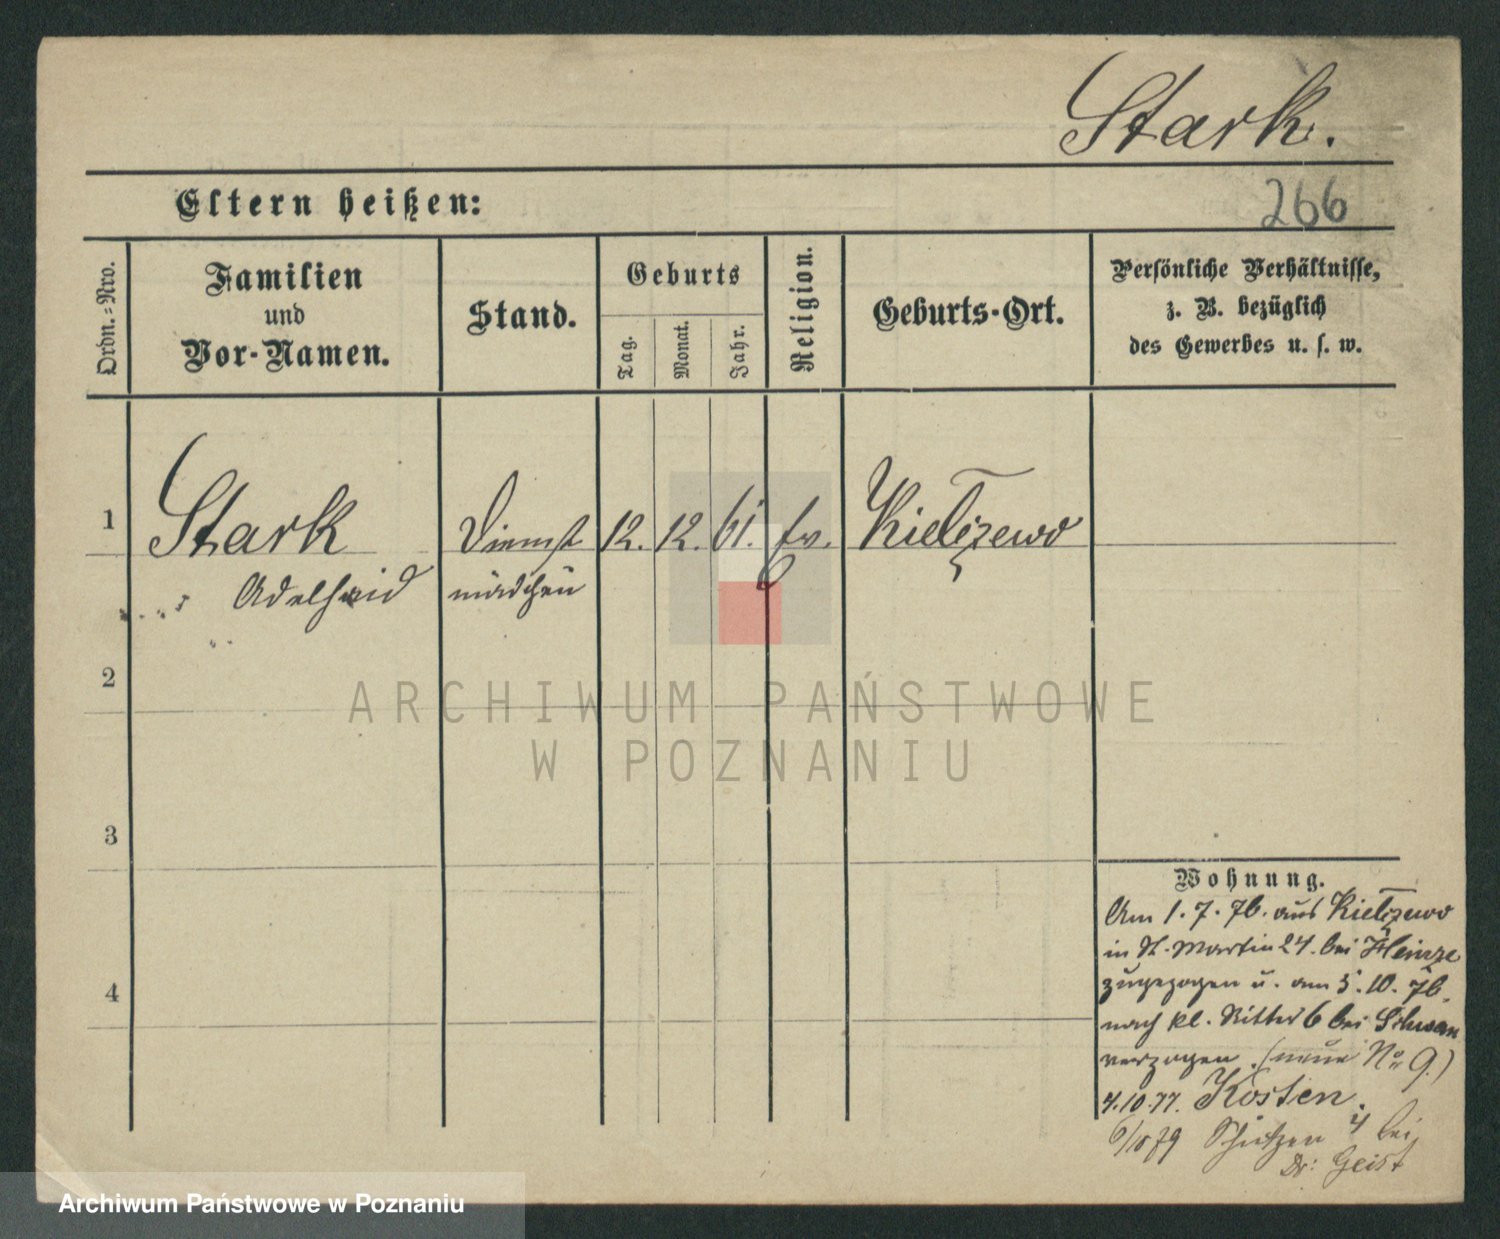 Stark.
266
Eltern heißen:
Ordn.=Nro.
Familien
und
Vor-Namen.
Stand.
Geburts
Tag.
Monat.
Jahr.
Religion.
Geburts-Ort.
Persönliche Verhältnisse,
z. B. bezüglich
des Gewerbes u. s. w.
1
Stark
Dienst
12. 12. 61. ev.
Kiełczewo
Adelheid
mädchen
2
3
4
Wohnung.
Am 1. 7. 76. aus Kiełczewo
in St. Martin 24. bei Heinze
zugezogen u. am 5. 10. 76.
nach kl. Ritter 6 bei
verzogen. (neue No 9.)
4.10.77. Kosten.
6/10 79 Schützen 4 bei
Dr: Geist
ARCHIWUM PAŃSTWOWE
W POZNANIU
Archiwum Państwowe w Poznaniu